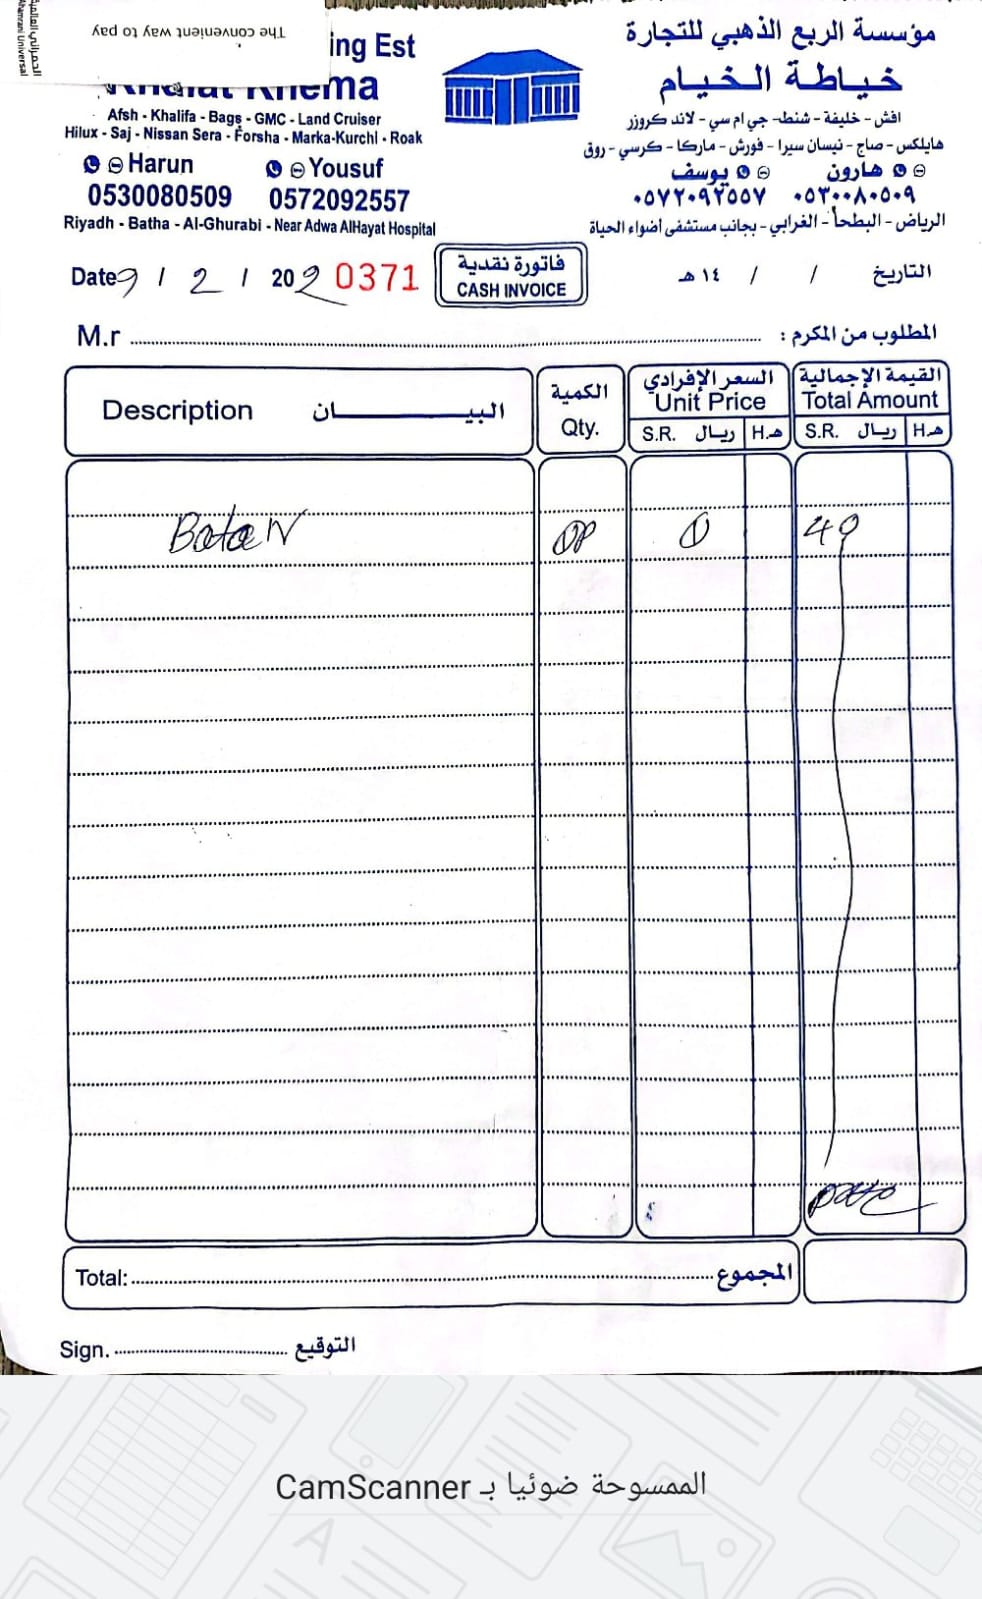 The convenient way to pay
الحمراني العالمية
Alhamrani Universal
ing Est
Khaiat Khema
Afsh - Khalifa - Bags - GMC - Land Cruiser
Hilux - Saj - Nissan Sera - Forsha - Marka-Kurchl - Roak
Harun Yousuf
0530080509 0572092557
Riyadh - Batha - Al-Ghurabi - Near Adwa AlHayat Hospital
مؤسسة الربع الذهبي للتجارة
خياطة الخيام
افش - خليفة - شنط- جي ام سي - لاند كروزر
هايلكس - صاج - نيسان سيرا - فورش - ماركا - كرسي - روق
هارون يوسف
٠٥٣٠٠٨٠٥٠٩ ٠٥٧٢٠٩٢٥٥٧
الرياض - البطحأ - الغرابي - بجانب مستشفى أضواء الحياة
Date 9 / 2 / 202 0371
فاتورة نقدية
CASH INVOICE
التاريخ / / ١٤ هـ
M.r المطلوب من المكرم :
Description البيـــــــان
الكمية
Qty.
السعر الإفرادي
Unit Price
S.R. ريال H.هـ
القيمة الإجمالية
Total Amount
S.R. ريال H.هـ
BotaN 1 40
Total: المجموع
Sign. التوقيع
الممسوحة ضوئيا بـ CamScanner